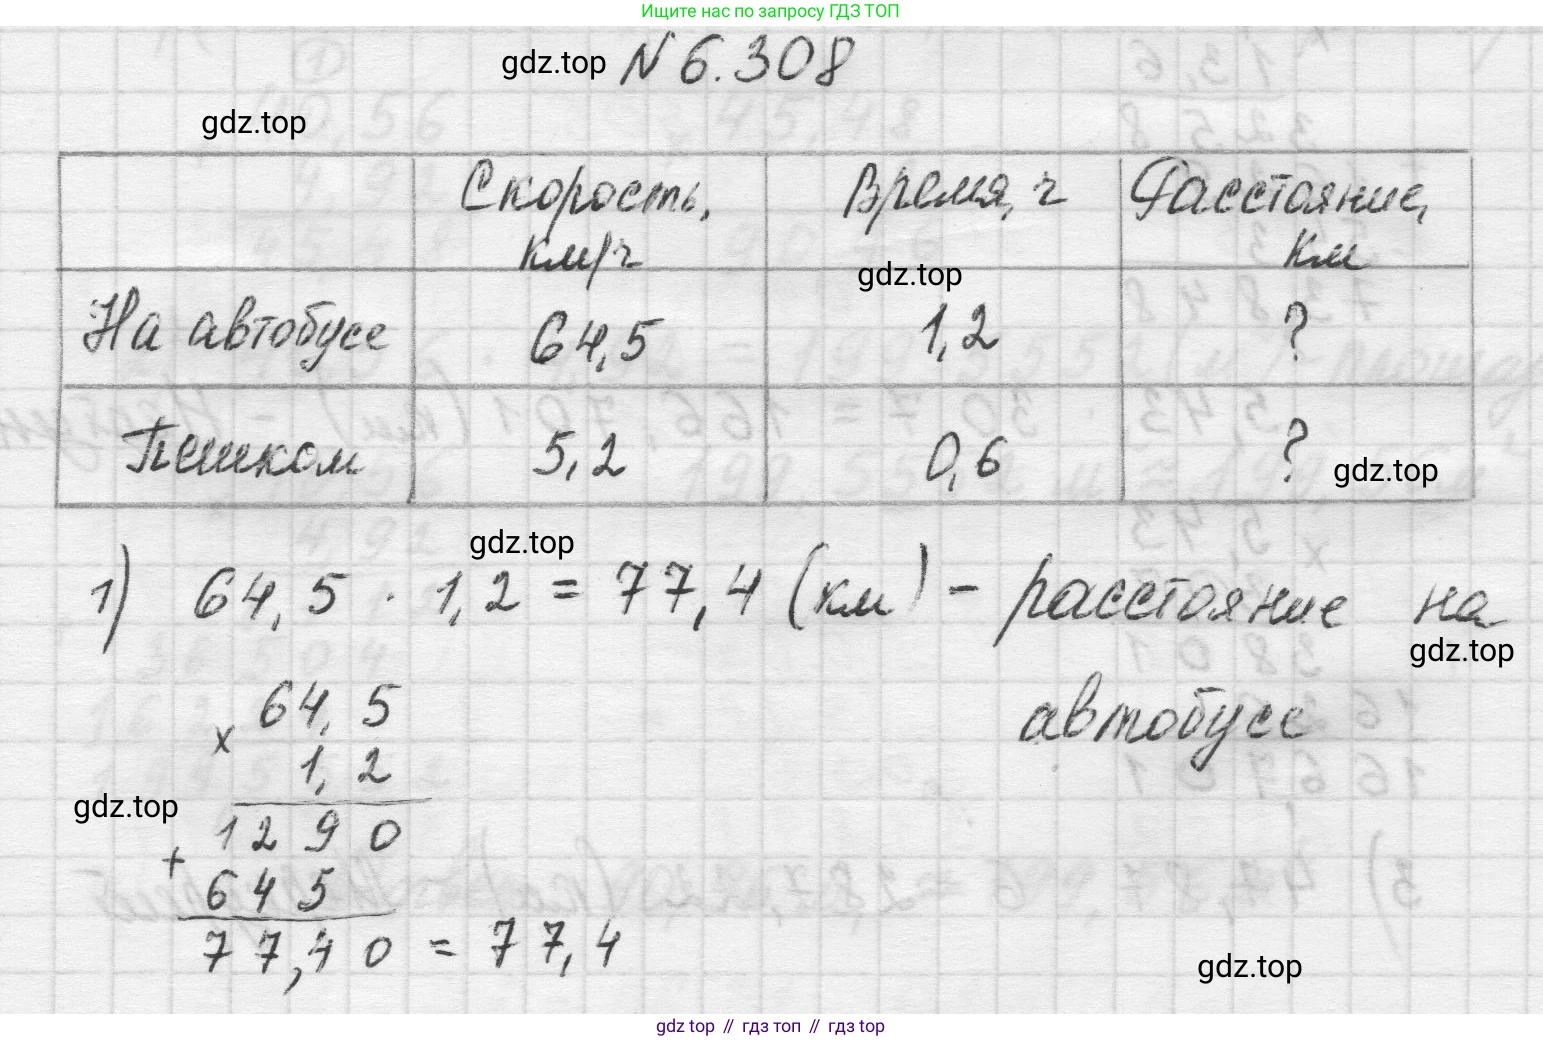 Ищите нас по запросу ГДЗ ТОП
gdz.top № 6.308
gdz.top
Скорость, км/ч
Время, ч
Расстояние, км
gdz.top
На автобусе 64,5 1,2 ?
Пешком 5,2 0,6 ?
gdz.top
gdz.top
1) 64,5 · 1,2 = 77,4 (км) – расстояние на
gdz.top
автобусе
64,5
×
1,2
gdz.top
1290
+
645
77,40 = 77,4
gdz.top
gdz top // гдз топ // gdz top